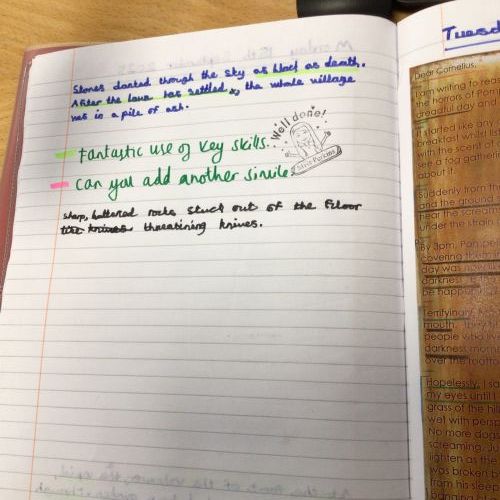 Stones darted though the sky as black as death.
After the lava has settled, the whole village
was in a pile of ash.
Fantastic use of key skills.
Can you add another simile.
Well done!
Miss Perkins
sharp, battered rocks stuck out of the floor
like knives threatining knives.
Tuesd
Dear Cornelius,
I am writing to
the horrors of Pom
dreadful day and
It started like any
breakfast whilst
with the scent of
see a fog gatherin
about it.
Suddenly from th
and the ground
hear the scream
under the strain
By 3pm, Pompeii
covering the
day was now
darkness
be happ
Terrifyingly,
mouth. They
people who liv
darkness
over the roofto
Hopelessly, I sa
my eyes until I
grass of the hil
wet with persp
No more dog
screaming. Ju
lighten as the
was broken b
from his slee